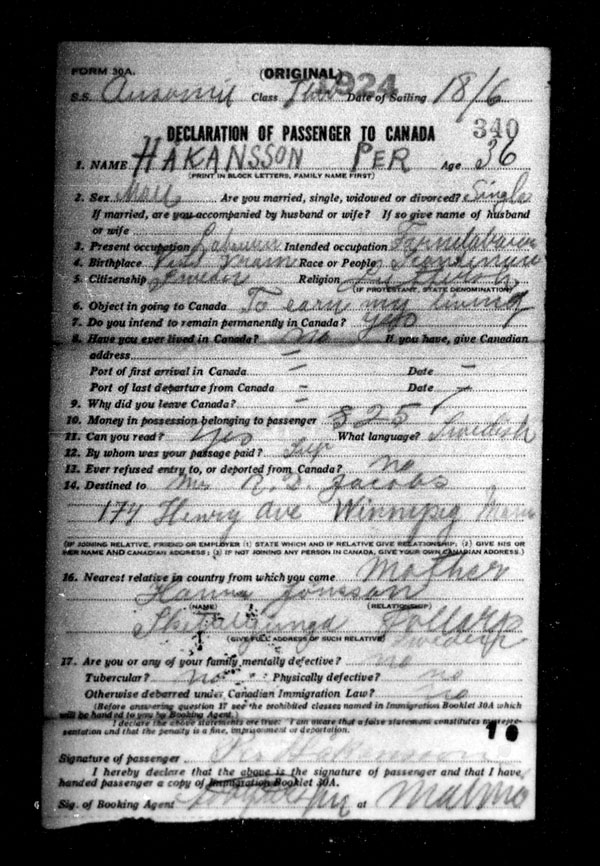 FORM 30A. (ORIGINAL) 1924
S.S. Class Date of Sailing 18/6
DECLARATION OF PASSENGER TO CANADA 340
1. NAME HÅKANSSON PER Age 36
(PRINT IN BLOCK LETTERS, FAMILY NAME FIRST)
2. Sex Male Are you married, single, widowed or divorced? Single
If married, are you accompanied by husband or wife? If so give name of husband
or wife
3. Present occupation Labourer Intended occupation Farmlabourer
4. Birthplace Race or People
5. Citizenship Sweden Religion
(IF PROTESTANT, STATE DENOMINATION)
6. Object in going to Canada To earn my living
7. Do you intend to remain permanently in Canada? Yes
8. Have you ever lived in Canada? No If you have, give Canadian
address –
Port of first arrival in Canada – Date –
Port of last departure from Canada – Date –
9. Why did you leave Canada?
10. Money in possession belonging to passenger $25
11. Can you read? Yes What language? Swedish
12. By whom was your passage paid?
13. Ever refused entry to, or deported from Canada? no
14. Destined to Jacobs
174 Henry Ave Winnipeg
(IF JOINING RELATIVE, FRIEND OR EMPLOYER (1) STATE WHICH AND IF RELATIVE GIVE RELATIONSHIP; (2) GIVE HIS OR
HER NAME AND CANADIAN ADDRESS; (3) IF NOT JOINING ANY PERSON IN CANADA, GIVE YOUR OWN CANADIAN ADDRESS.)
16. Nearest relative in country from which you came Mother
Hanna Jonsson
(NAME) (RELATIONSHIP)
Tollarp
(GIVE FULL ADDRESS OF SUCH RELATIVE) Sweden
17. Are you or any of your family mentally defective? no
Tubercular? no Physically defective? no
Otherwise debarred under Canadian Immigration Law? no
(Before answering question 17 see the prohibited classes named in Immigration Booklet 30A which
will be handed to you by Booking Agent.)
I declare the above statements are true: I am aware that a false statement constitutes misrepre-
sentation and that the penalty is a fine, imprisonment or deportation.
Signature of passenger P. Håkansson
I hereby declare that the above is the signature of passenger and that I have
handed passenger a copy of Immigration Booklet 30A.
Sig. of Booking Agent at Malmö